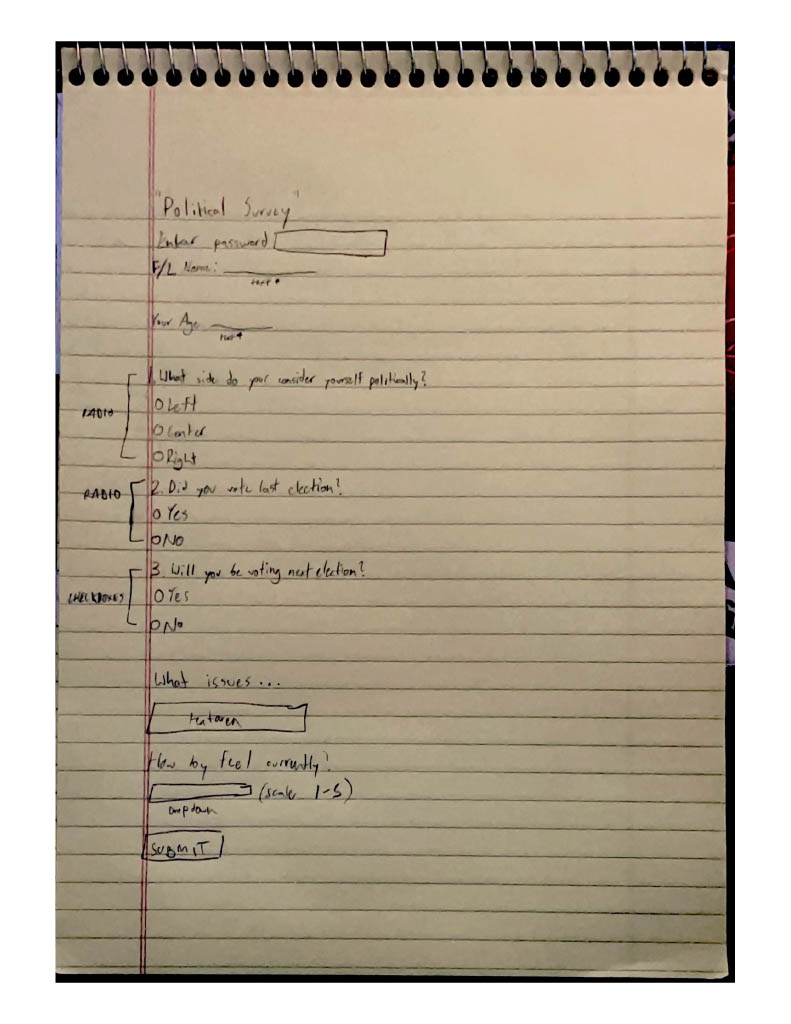 "Political Survey"
Enter password
F/L Name:
text
Your Age
text
1. What side do your consider yourself politically?
RADIO
O Left
O Center
O Right
RADIO
2. Did you vote last election?
O Yes
O No
CHECKBOXES
3. Will you be voting next election?
O Yes
O No
What issues...
textarea
How feel currently?
(scale 1-5)
Dropdown
SUBMIT